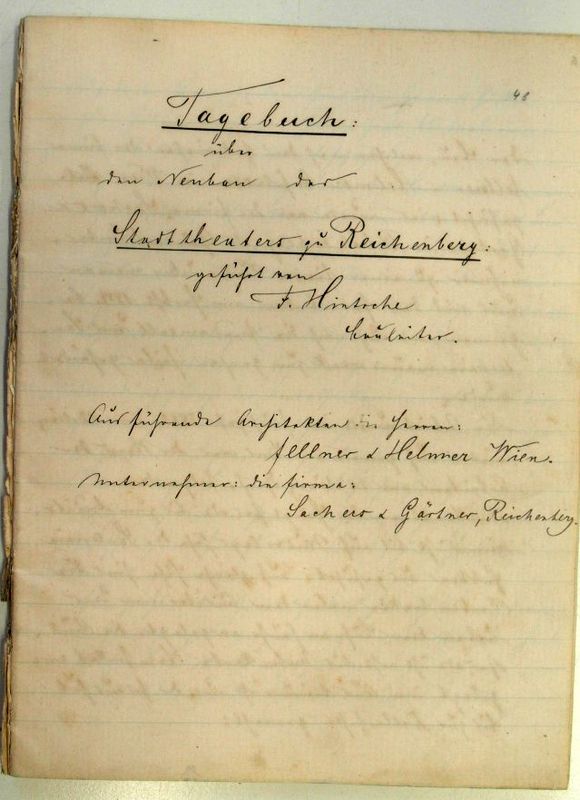 48
Tagebuch:
über
den Neubau des
Stadttheaters zu Reichenberg:
geführt von
F. Hintsche
Bauleiter.
Ausführende Architekten die Herren:
Fellner & Helmer Wien.
Unternehmer: die Firma:
Sachers & Gärtner, Reichenberg.